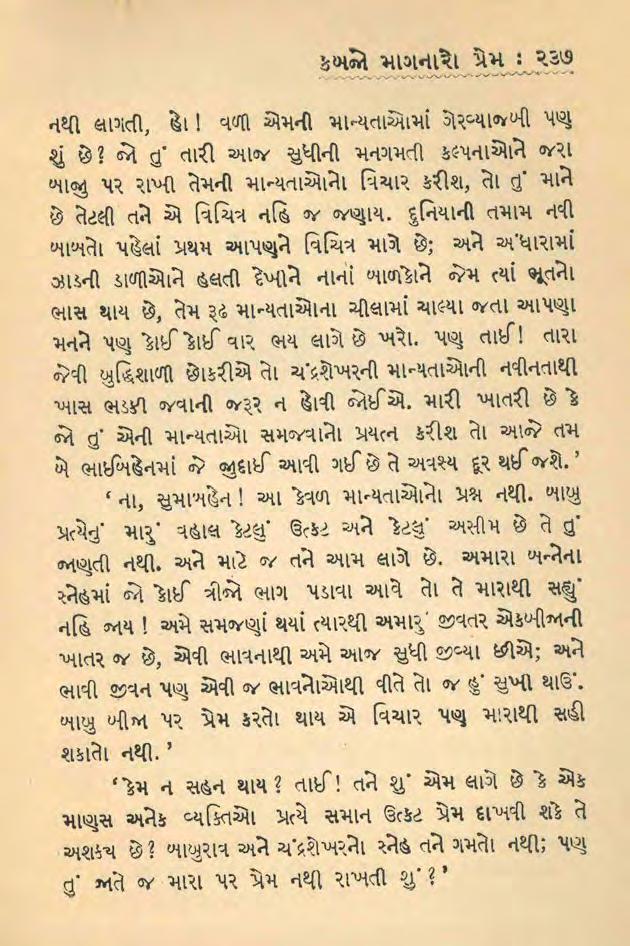 કબજો માગનારો પ્રેમ : ૨૩૭
નથી લાગતી, હો! વળી એમની માન્યતાઓમાં ગેરવ્યાજબી પણુ
શું છે? જો તું તારી આજ સુધીની મનગમતી કલ્પનાઓને જરા
બાજુ પર રાખી તેમની માન્યતાઓનો વિચાર કરીશ, તો તું માને
છે તેટલી તને એ વિચિત્ર નહિ જ જણાય. દુનિયાની તમામ નવી
બાબતો પહેલાં પ્રથમ આપણુને વિચિત્ર માગે છે; અને અંધારામાં
ઝાડની ડાળીઓને હલતી દેખીને નાનાં બાળકોને જેમ ત્યાં ભૂતનો
ભાસ થાય છે, તેમ રૂઢ માન્યતાઓના ચીલામાં ચાલ્યા જતા આપણા
મનને પણુ કોઈ કોઈ વાર ભય લાગે છે ખરો. પણુ તાઈ! તારા
જેવી બુદ્ધિશાળી છોકરીએ તો ચંદ્રશેખરની માન્યતાઓની નવીનતાથી
ખાસ ભડકી જવાની જરૂર ન હોવી જોઈએ. મારી ખાતરી છે કે
જો તું એની માન્યતાઓ સમજવાનો પ્રયત્ન કરીશ તો આજે તમ
બે ભાઈબહેનમાં જે જુદાઈ આવી ગઈ છે તે અવશ્ય દૂર થઈ જશે.’
‘ના, સુમાબહેન! આ કેવળ માન્યતાઓનો પ્રશ્ન નથી. બાબુ
પ્રત્યેનું મારું વહાલ કેટલું ઉત્કટ અને કેટલું અસીમ છે તે તું
જાણતી નથી. અને માટે જ તને આમ લાગે છે. અમારા બન્નેના
સ્નેહમાં જો કોઈ ત્રીજો ભાગ પડાવા આવે તો તે મારાથી સહ્યું
નહિ જાય! અમે સમજણાં થયાં ત્યારથી અમારું જીવતર એકબીજાની
ખાતર જ છે, એવી ભાવનાથી અમે આજ સુધી જીવ્યા છીએ; અને
ભાવી જીવન પણુ એવી જ ભાવનોઓથી વીતે તો જ હું સુખી થાઉં.
બાબુ બીજા પર પ્રેમ કરતો થાય એ વિચાર પણુ મારાથી સહી
શકાતો નથી.’
‘કેમ ન સહન થાય? તાઈ! તને શું એમ લાગે છે કે એક
માણુસ અનેક વ્યક્તિઓ પ્રત્યે સમાન ઉત્કટ પ્રેમ દાખવી શકે તે
અશક્ય છે? બાબુરાવ અને ચંદ્રશેખરનો સ્નેહ તને ગમતો નથી; પણુ
તું જાતે જ મારા પર પ્રેમ નથી રાખતી શું?’